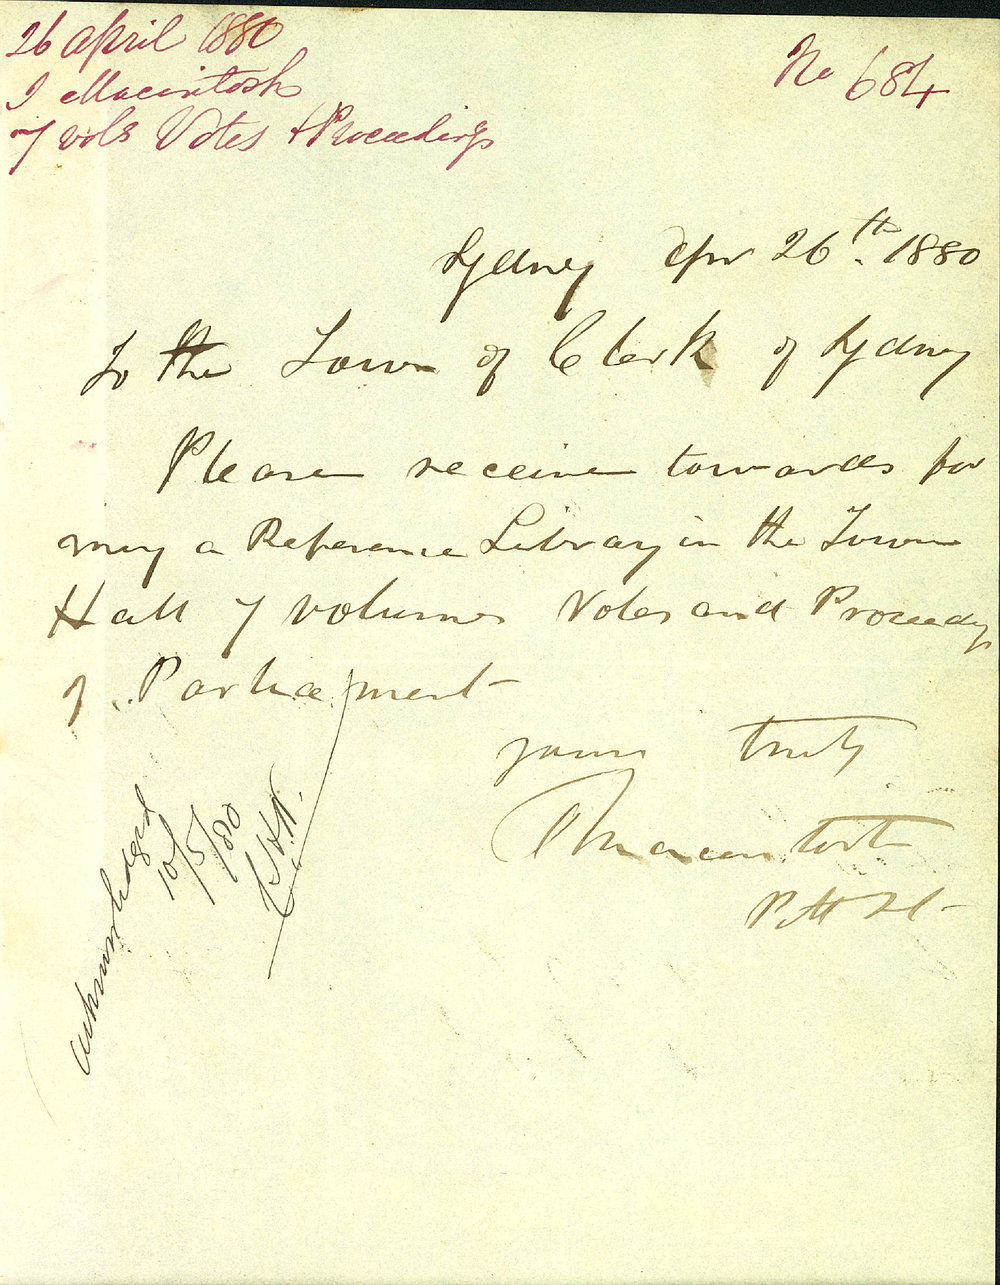 26 April 1880
J Macintosh
7 vols Votes & Proceedings
No 684
Sydney Apr 26th. 1880
To the Town of Clerk of Sydney
Please receive towards for
ming a Reference Library in the Town
Hall 7 volumes Votes and Proceedgs
of Parliament
yours truly
J Macintosh
Pitt St
Acknowledged
10/5/80
C.H.W.